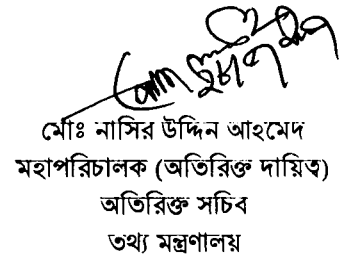 মোঃ নাসির উদ্দিন আহমেদ
মহাপরিচালক (অতিরিক্ত দায়িত্ব)
অতিরিক্ত সচিব
তথ্য মন্ত্রণালয়